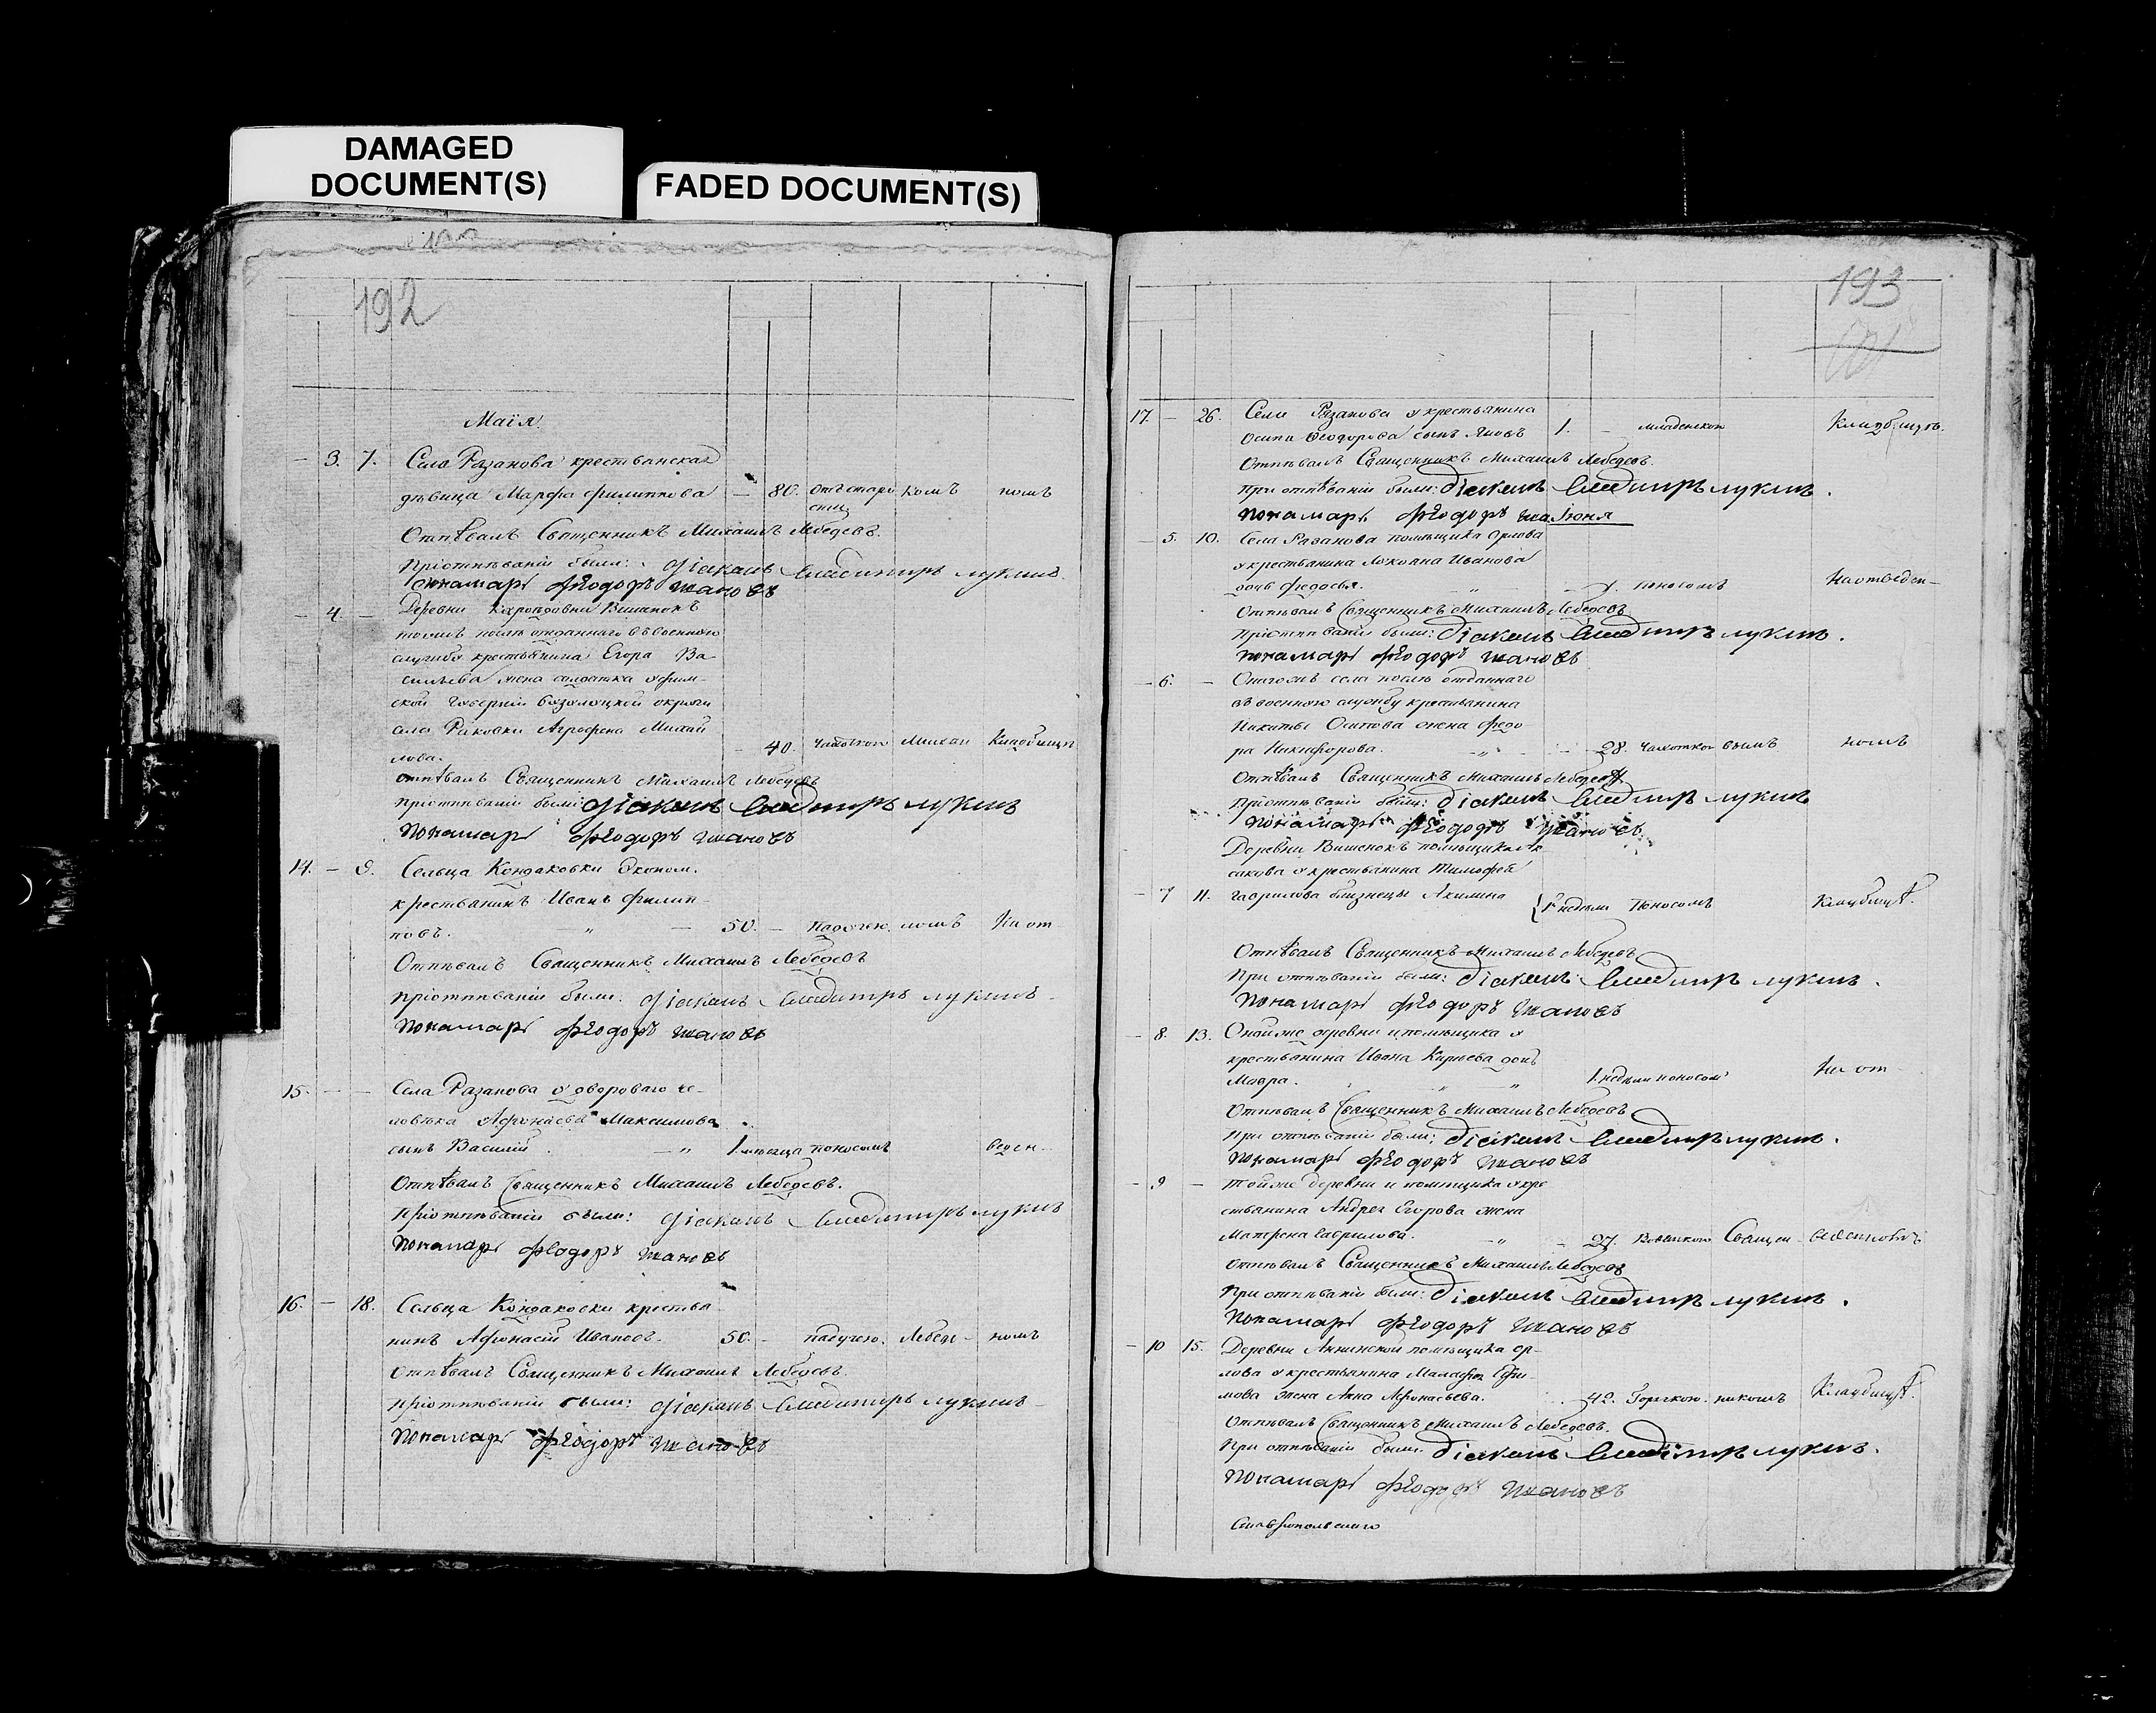 DAMAGED
DOCUMENT(S)
FADED DOCUMENT(S)
192
Маія
3. 7. Села Рязанова крестьянская
дѣвица Марфа Филиппова — 80. отъ старо комъ номъ
сти
Отпѣвалъ Священникъ Михаилъ Лебедевъ.
Приотпѣваніи были: Діаконъ Владимиръ Лукинъ
Понамарь Ѳеодоръ Ивановъ
4. — Деревни Вишенокъ
помѣщ отданнаго въ военную
службу крестьянина Егора Ва-
сильева жена солдатка
ской губерніи округи
села Раковки Агрофена Михай
лова. — 40. чахоткою Михаи Кладбищѣ
отпѣвалъ Священникъ Михаилъ Лебедевъ
приотпѣваніи были: Діаконъ Владимиръ Лукинъ
Понамарь Ѳеодоръ Ивановъ
14. — 9. Сельца Кондаковки Эконом.
крестьянинъ Иванъ Филип-
повъ. — „ — 50. — Падучею. ломъ На от
Отпѣвалъ Священникъ Михаилъ Лебедевъ
приотпѣваніи были: Діаконъ Владимиръ Лукинъ
Понамарь Ѳеодоръ Ивановъ
15. — — Села Рязанова у двороваго че-
ловѣка Афонасья Максимова
сынъ Василій. — „ 1. мѣсяца поносомъ веден-
Отпѣвалъ Священникъ Михаилъ Лебедевъ.
приотпѣваніи были: Діаконъ Владимиръ Лукинъ
Понамарь Ѳеодоръ Ивановъ
16. — 18. Сельца Кондаковки крестья-
нинъ Афонасій Ивановъ. 50. — падучею. Лебеде- номъ
Отпѣвалъ Священникъ Михаилъ Лебедевъ.
приотпѣваніи были: Діаконъ Владимиръ Лукинъ
Понамарь Ѳеодоръ Ивановъ
193
17. — 26. Села Рязанова у крестьянина
Осипа Ѳеодорова сынъ Яковъ 1. — младенскою Кладбищѣ.
Отпѣвалъ Священникъ Михаилъ Лебедевъ.
При отпѣваніи были: Діаконъ Владимиръ Лукинъ.
Понамарь Ѳеодоръ Ивановъ
Іюня
5. 10. Села Рязанова помѣщика Орлова
у крестьянина Иванова
дочь Федосья. „ поносомъ На отведен-
Отпѣвалъ Священникъ Михаилъ Лебедевъ
Приотпѣваніи были: Діаконъ Владимиръ Лукинъ.
Понамарь Ѳеодоръ Ивановъ
6. — Онагожъ села отданнаго
въ военную службу крестьянина
Никиты Осипова жена Федо-
ра Никифорова. „ — 28. чахоткою номъ
Отпѣвалъ Священникъ Михаилъ Лебедевъ
Приотпѣваніи были: Діаконъ Владимиръ Лукинъ
Понамарь Ѳеодоръ Ивановъ
Деревни Вишенокъ помѣщика
сакова у крестьянина Тимофея
7 11. Гаврилова близнецы Акилина недели Поносомъ Кладбищѣ.
Отпѣвалъ Священникъ Михаилъ Лебедевъ
При отпѣваніи были: Діаконъ Владимиръ Лукинъ.
Понамарь Ѳеодоръ Ивановъ
8. 13. Онойже деревни и помѣщика у
крестьянина Ивана Кирѣева дочь
Мавра. „ „ 1. недели поносомъ На от-
Отпѣвалъ Священникъ Михаилъ Лебедевъ
При отпѣваніи были: Діаконъ Владимиръ Лукинъ.
Понамарь Ѳеодоръ Ивановъ
9 — Тойже деревни и помѣщика у кре
стьянина Андрея Егорова жена
Матрена Гаврилова. „ — 27. Священ- веденномъ
Отпѣвалъ Священникъ Михаилъ Лебедевъ
При отпѣваніи были: Діаконъ Владимиръ Лукинъ.
Понамарь Ѳеодоръ Ивановъ
10 15. Деревни Аннинской помѣщика Ор-
лова у крестьянина Малафея Ефи-
мова жена Анна Афонасьева. 42. Горячкою. никомъ Кладбищѣ.
Отпѣвалъ Священникъ Михаилъ Лебедевъ.
При отпѣваніи были: Діаконъ Владимиръ Лукинъ.
Понамарь Ѳеодоръ Ивановъ
Ставропольскаго